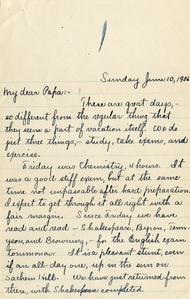 Sunday June 10, 1906
My dear Papa:-
These are great days, -
so different from the regular thing that
they seem a part of vacation itself. We do
just three things, - study, take exams, and
exercise.
Friday was Chemistry, 4 hours. It
was a good stiff exam, but at the same
time not unpassable after hard preparation.
I expect to get through it all right with a
fair margin. Since Friday we have
read and read - Shakespeare, Byron, Tenny-
son and Browning, - for the English exam
tomorrow. It is a pleasant stunt, even
if an all-day one, up in the sun on
Sachem Hill. We have just returned from
there, with Shakespeare completed.